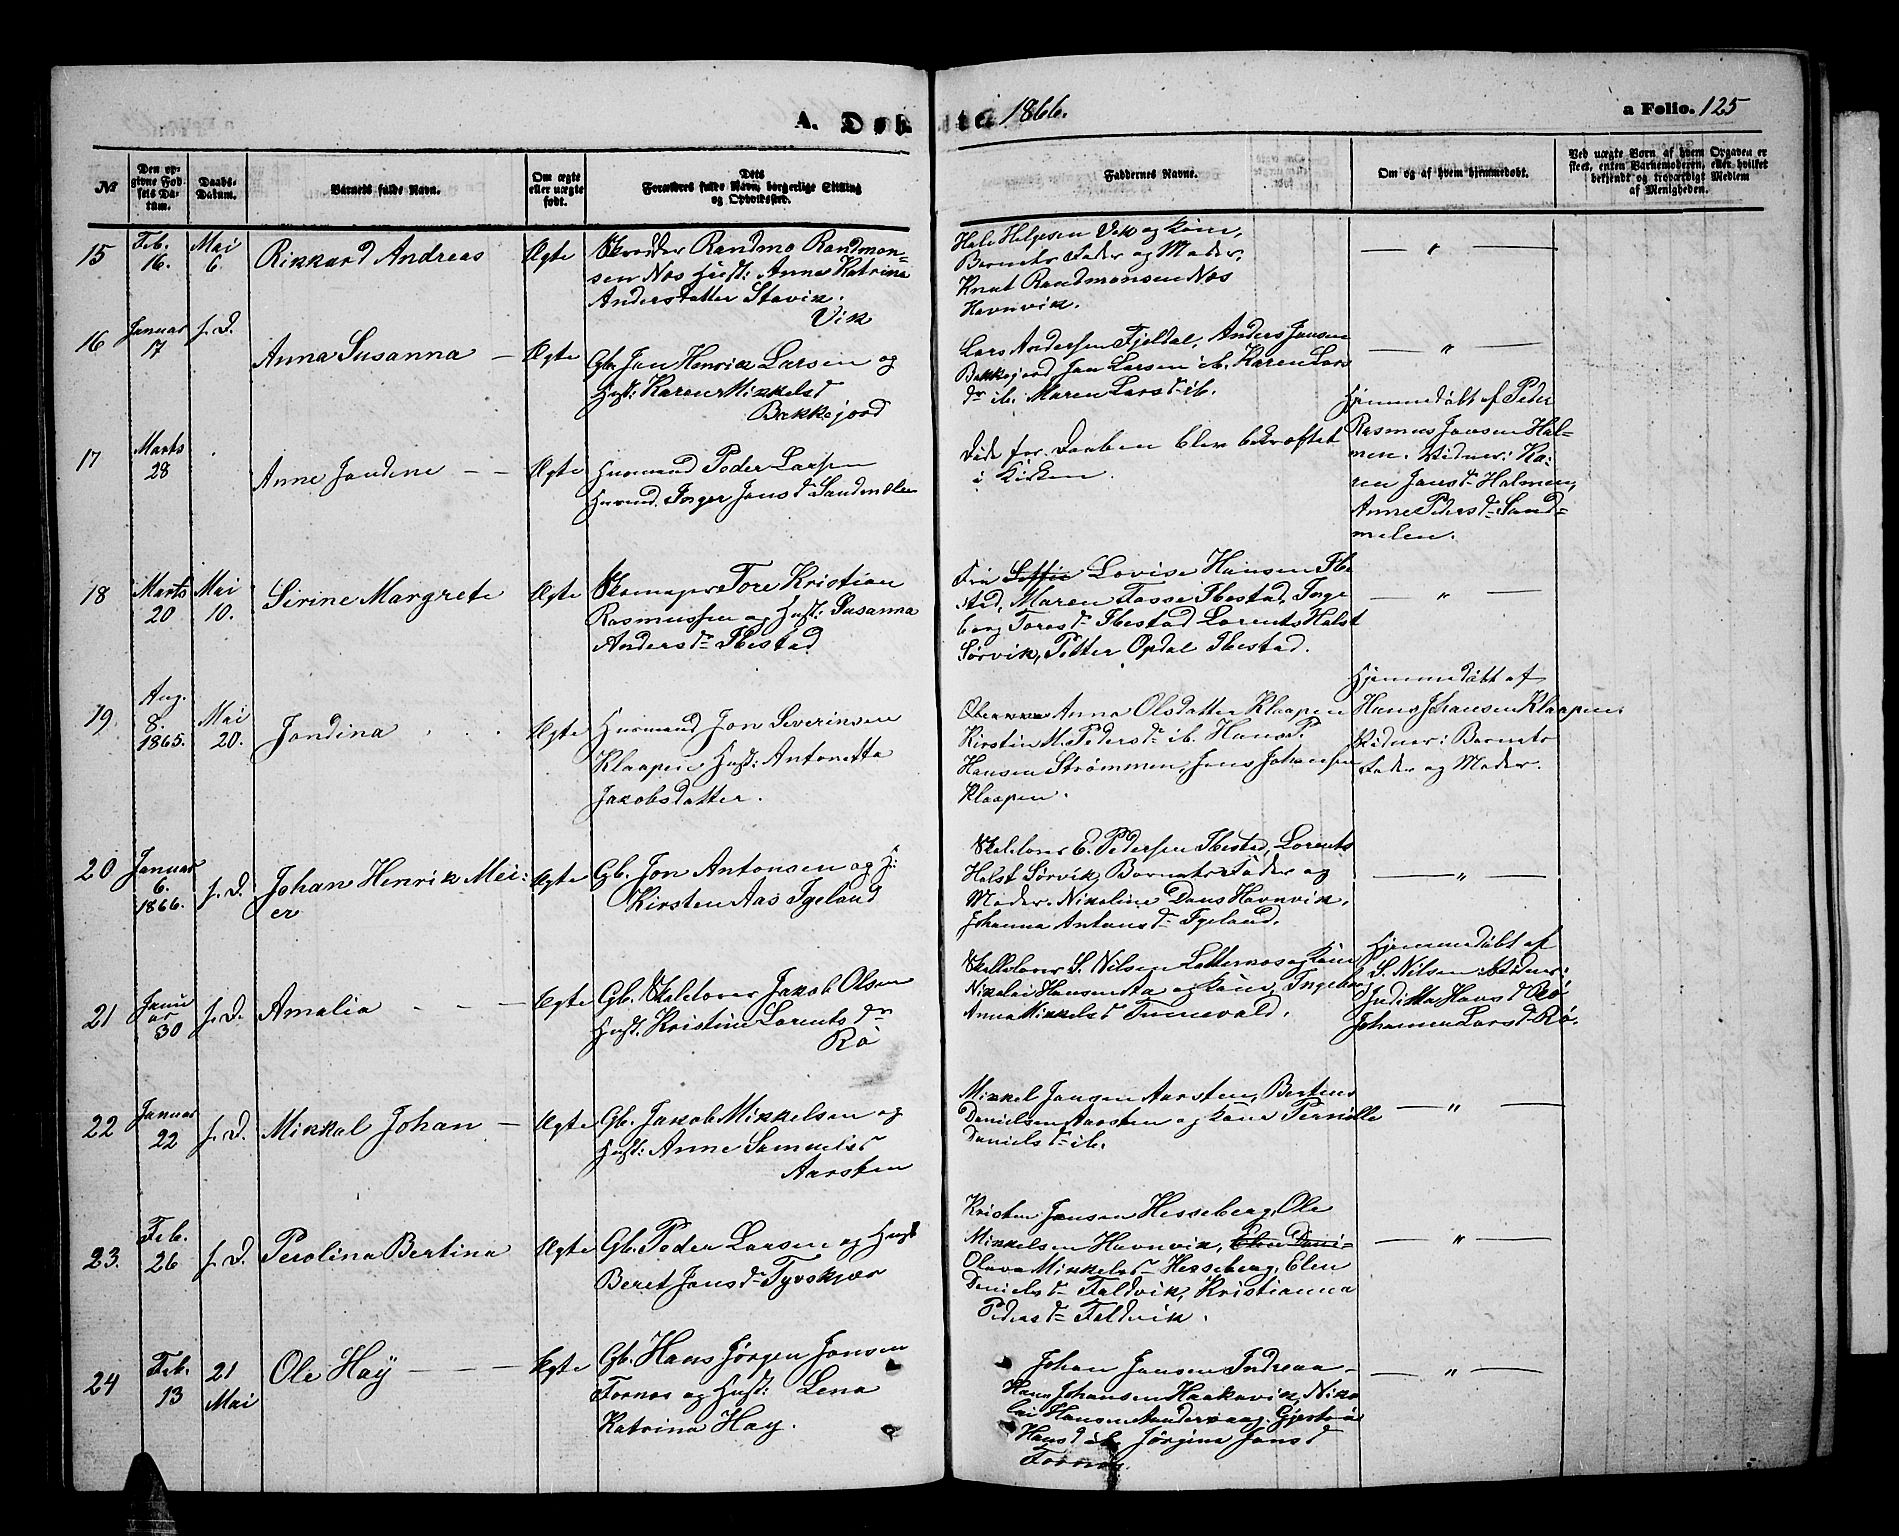 A. Døbte 1866. a Folio. 125
№
Den opgivne Fødsels Datum.
Daabs-Datum.
Barnets fulde Navn.
Om ægte eller uægte født.
Dets Forældres fulde Navn, borgerlige Stilling og Opholdssted.
Faddernes Navne.
Om og af hvem hjemmedøbt.
Ved uægte Børn af hvem Opgaven er skeet, enten Barnemoderen, eller hvilket bekjendt og troværdigt Medlem af Menigheden.
15
Feb.
16.
Mai
6.
Rikkard Andreas
Ægte
Skrædder Randmo Randmon-
sen Næs Hust: Anna Katrina
Andersdatter Stavik.
Hals Helgesen Vik og kone,
Barnets Fader og Moder,
Knut Randmonsen Næs
Havnvik.
— " —
16
Januar
17
s. D.
Anna Susanna —
Ægte
Vik
Gb. Jan Henrik Larsen og
Hust: Karen Mikkelsd
Bakkejord
Lars Andersen Fjeldal, Anders Jansen
Bakkejord Jan Larsen ib. Karen Lars
dr ib. Maren Larsd ib.
— " —
17
Marts
28
Anne Jandine — —
Ægte
Husmand Peder Larsen
Inger Jansd Sandmælen
Døde før Daaben blev bekræftet
i Kirken.
Hjemmedøbt af Peder
Rasmus Jansen Hal-
men. Vidner: Ka-
ren Jansdr Halmen,
Anne Pedersdr Sand-
melen.
18
Marts
20
Mai
10.
Sirine Margrete
Ægte
Skomager Tore Kristian
Rasmussen og Hust: Susanna
Andersdr Ibestad
Fru Lovise Hansen Ibe
stad, Maren Fosse Ibestad, Inge
borg Toresdr Ibestad Lorents Halst
Sørvik, Petter Opdal Ibestad.
— " —
19.
Aug.
8.
1865.
Mai
20.
Jandina
Ægte
Husmand Jon Severinsen
Klaapen Hust: Antonetta
Jakobsdatter.
Anna Olsdatter Klaapen
Kirstin M. Pedersdr ib. Hans P.
Hansen Strømmen, Jens Johansen
Klaapen.
Hjemmedøbt af
Hans Johansen Klaapen.
Vidner: Barnets
Fader og Moder.
20
Januar
6.
1866.
s. D.
Johan Henrik Mei-
er
Ægte
Gb. Jon Antonsen og H:
Kirsten Aas Igeland
Skolelærer E. Pedersen Ibestad, Lorents
Halst Sørvik, Barnets Fader og
Moder. Nikoline Dons Havnvik,
Johanna Antonsdr Igeland.
— " —
21
Janu
ar
30
s. D.
Amalia — —
Ægte
Gb. Skolelærer Jakob Olsen
Hust. Kristine Lorentsdr
Rø
Skolelærer S. Nilsen Lotternæs og kone
Nikolai Hansen Aa og kone, Ingeborg
Anna Mikkelsd Trinevold.
Hjemmedøbt af
S. Nilsen. Vidner:
Juditta Hansd Rø
Johanna Larsd Rø.
22
Januar
22
s. D.
Mikkal Johan —
Ægte
Gb. Jakob Mikkelsen og
Hust: Anne Samuelsd
Aarsten
Mikkel Jangen Aarsten, Bertius
Danielsen Aarsten og kone Pernille
Danielsdr ib.
— " —
23.
Feb.
26
s. D.
Perolina Bertina
Ægte
Gb. Peder Larsen og Hust
Beret Jansdr Tyvskjær
Kristen Jensen Hesseberg, Ole
Mikkelsen Havnvik, Elen Dani-
Olava Mikkelsd Hesseberg, Elen
Danielsdr Faldvik, Kristianna
Pedersdr Faldvik.
— " —
24
Feb.
13
21
Mai
Ole Haÿ — —
Ægte
Gb. Hans Jørgen Jansen
Fornæs og Hust: Lena
Katrina Hay.
Johan Jansen Indreaa
Hans Johansen Haakavik, Niko
lai Hansen Sandersaag. Gjertrud
Hansd ib. Jørgine Jansd
Fornæs.
— " —